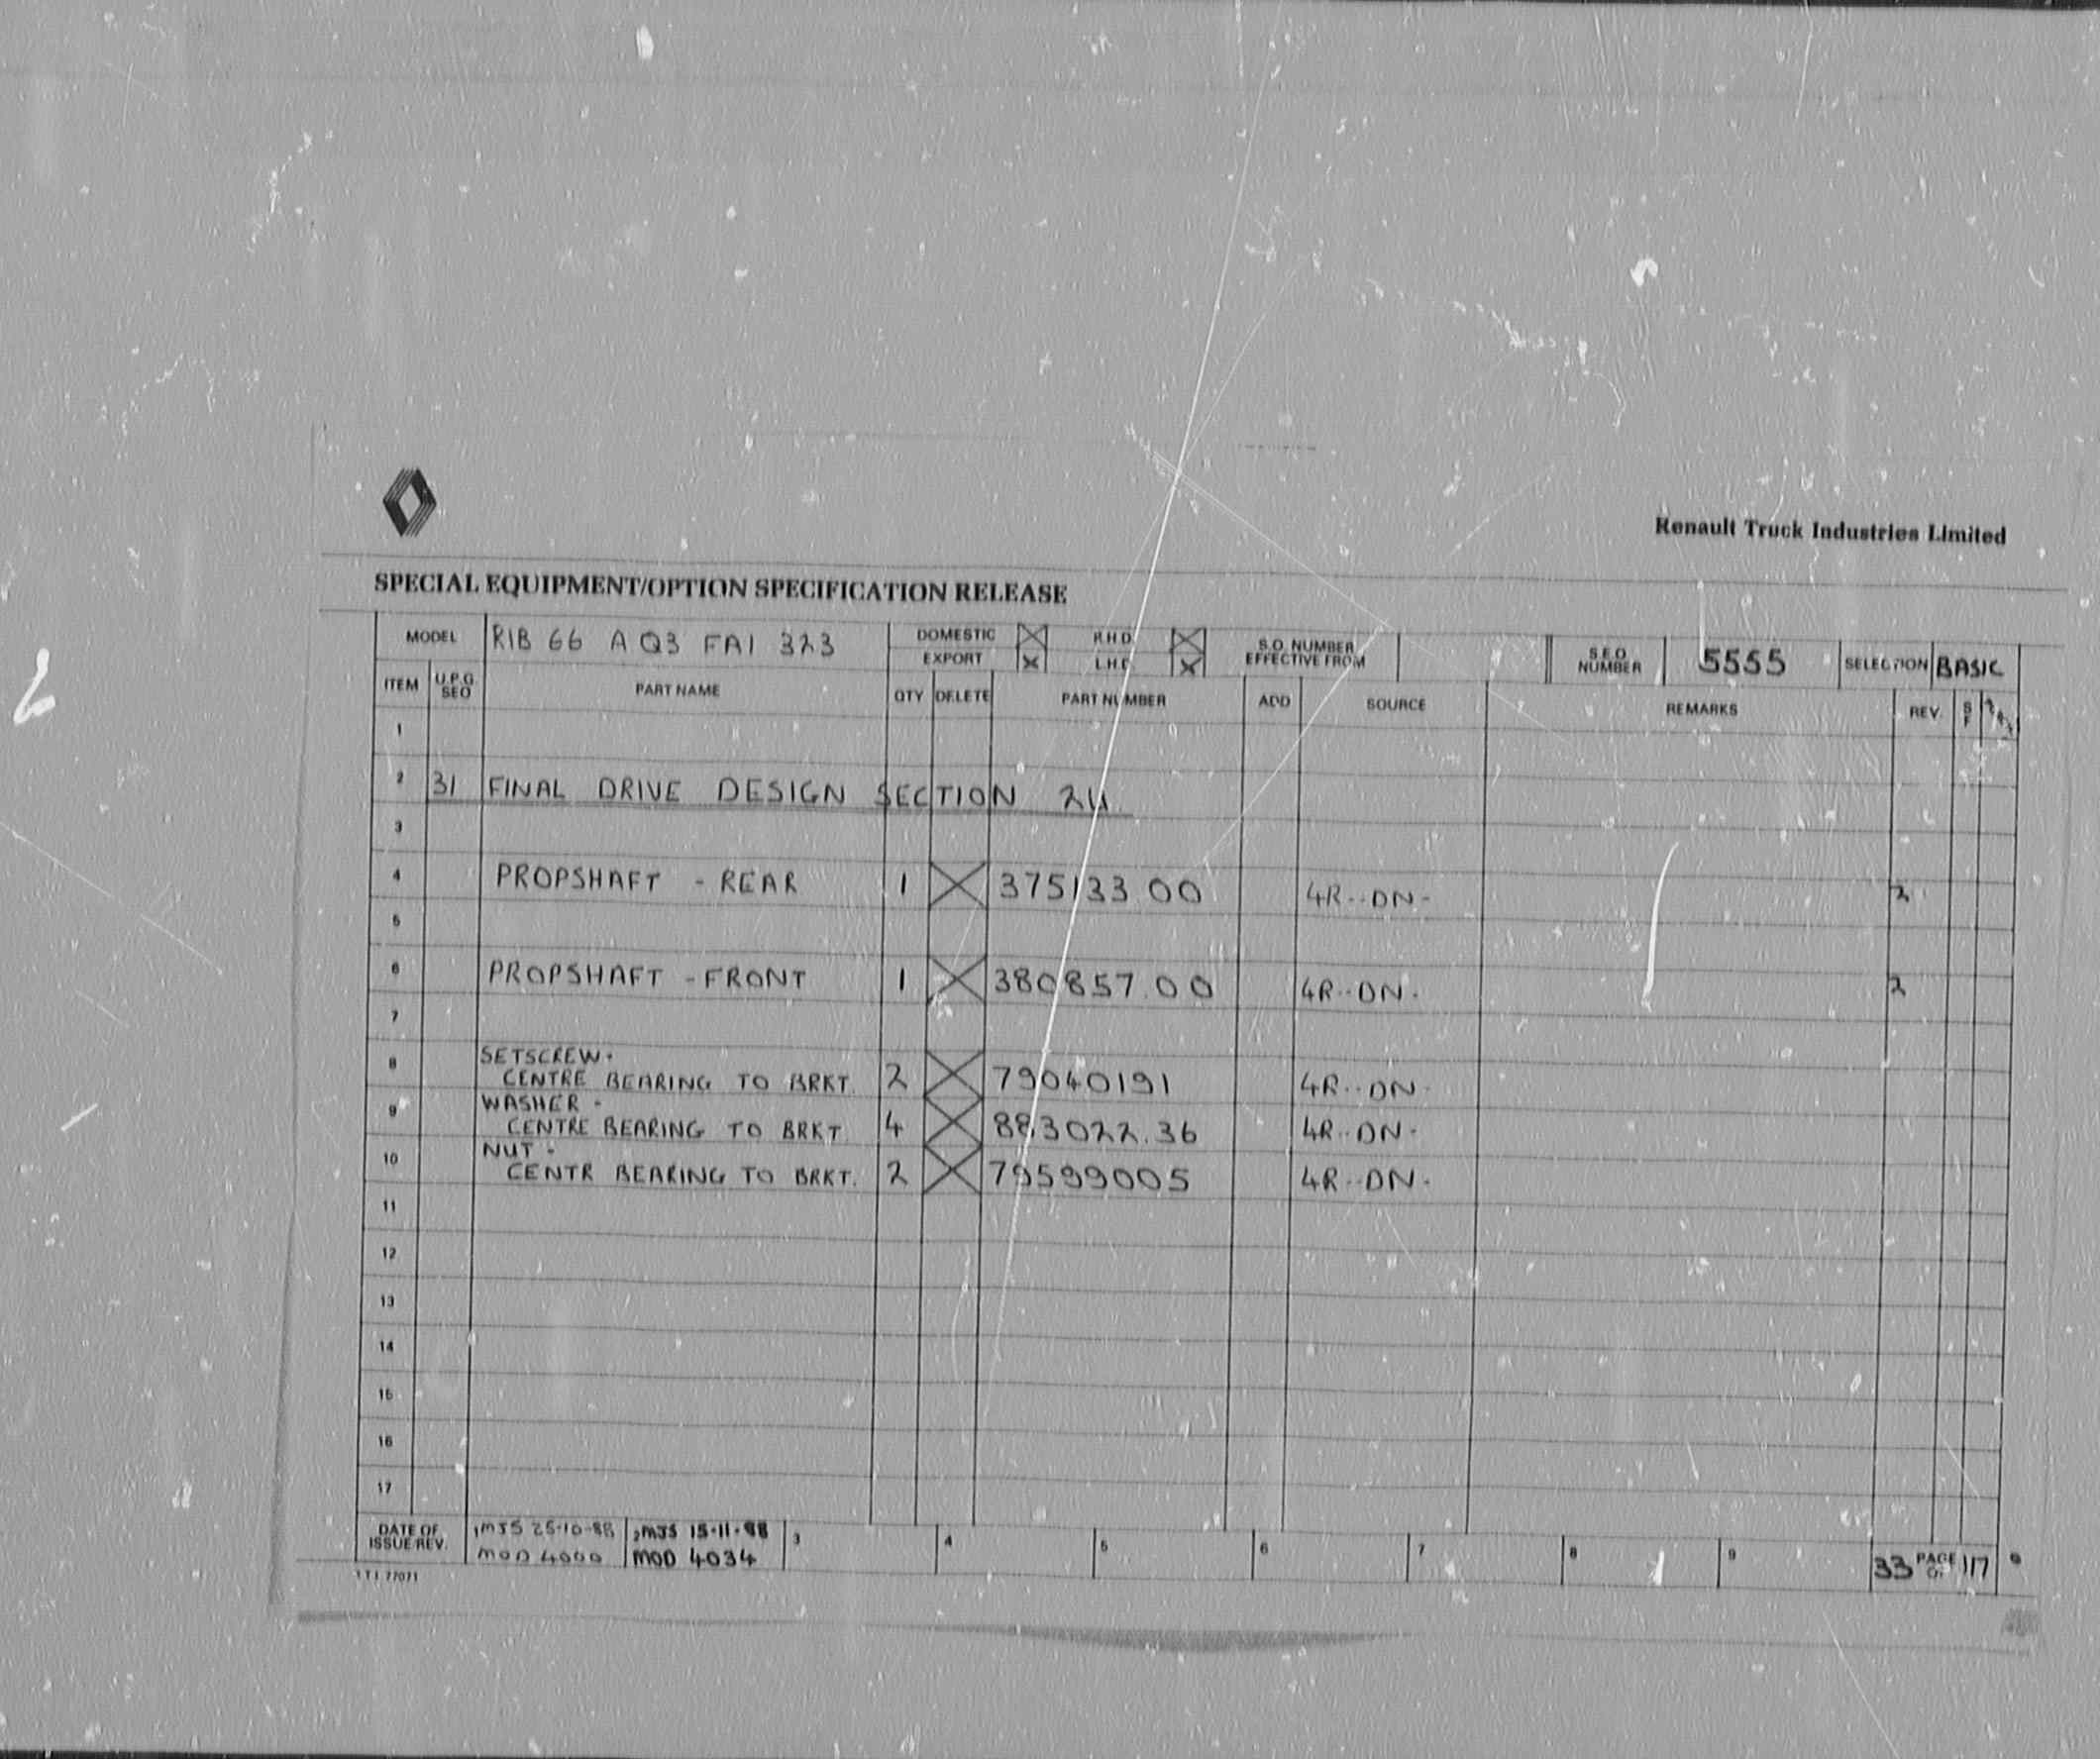 Renault Truck Industries Limited
SPECIAL EQUIPMENT/OPTION SPECIFICATION RELEASE
MODEL R1B 66 A Q3 FA1 323 DOMESTIC R.H.D. S.O. NUMBER S.E.O. 5555 SELECTION BASIC
EXPORT L.H.D. EFFECTIVE FROM NUMBER
ITEM U.P.G. PART NAME QTY DELETE PART NUMBER ADD SOURCE REMARKS REV.
SEO
1
2 31 FINAL DRIVE DESIGN SECTION 24
3
4 PROPSHAFT - REAR 1 375133 00 4R--DN- 2
5
6 PROPSHAFT - FRONT 1 380857.00 4R--DN- 2
7
SETSCREW -
8 CENTRE BEARING TO BRKT. 2 79040191 4R--DN-
WASHER -
9 CENTRE BEARING TO BRKT. 4 883022.36 4R--DN-
NUT -
10 CENTR BEARING TO BRKT. 2 79599005 4R--DN-
11
12
13
14
15
16
17
DATE OF 1 MJS 25-10-88 2 MJS 15-11-88 3 4 5 6 7 8 9
ISSUE/REV. MOD 4000 MOD 4034 33 PAGE OF 117